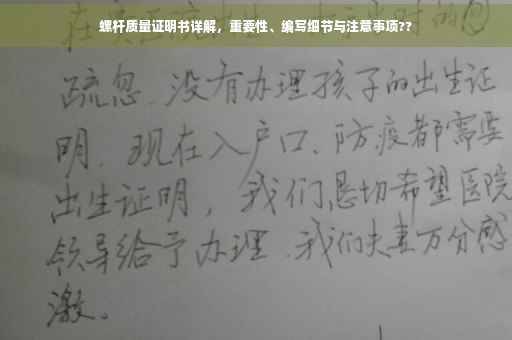 螺杆质量证明书详解，重要性、编写细节与注意事项??
疏忽、没有办理孩子的出生证
明、现在入户口、防疫都需要
出生证明，我们恳切希望医院
领导给予办理、我们夫妻万分感
激。